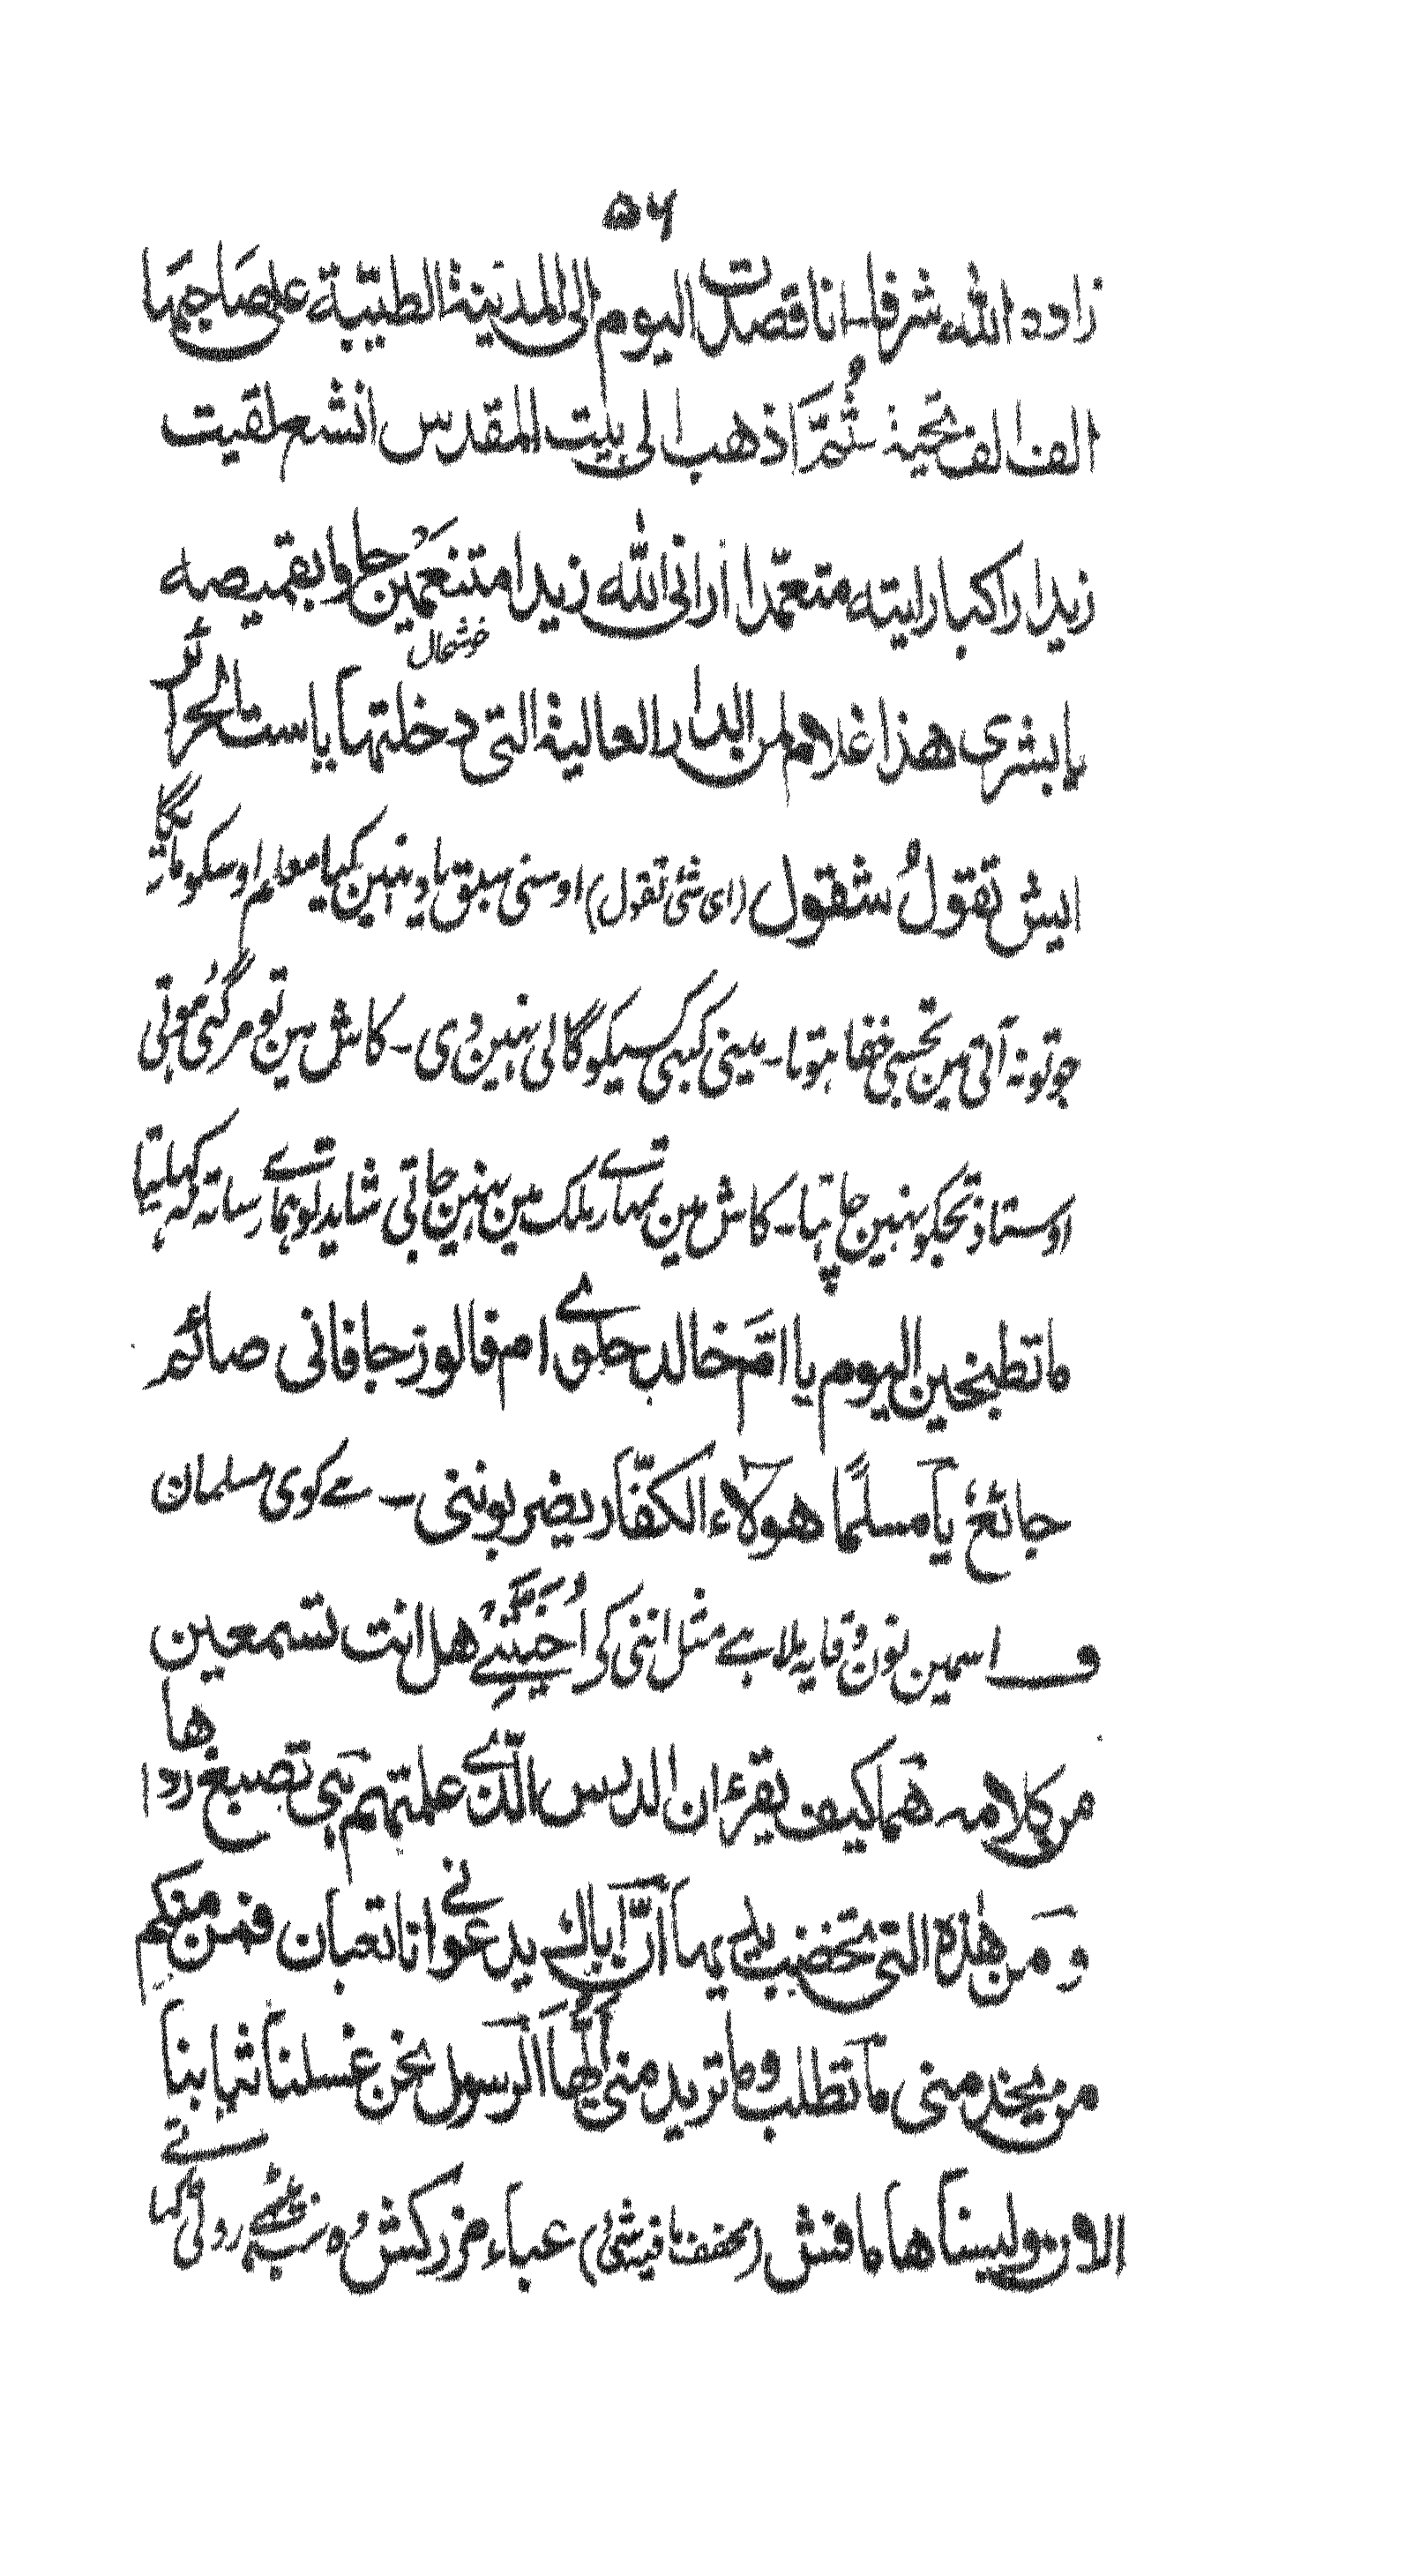 ۵۶
زاده الله شرفا - انا قصدت اليوم الى المدينة الطيبة على صاحبها
الف الف تحية ثُمَّ اذهب الى بيت المقدس انشم لقيت
زيدا راكبا رايته متعمّدا ارانى الله زيدا متنعمين جاوا بقميصه
خوشحال
يا بشرى هذا غلام لمن الدار العالية التى دخلتها يا ست الحرائر
ايش تقولُ شقول (اى شئ تقول) اوسنی سبق یاد نہین کیا معلم اوسکو ماریگا
جو تو نہ آتی مین تجسی خفا ہوتا - مینی کبہی کسیکو گالی نہین دی - کاش مین تو مرگئی ہوتی
اوستاذ تجکو نہین چاہتا - کاش مین تمہارے ملک مین نہین جاتی شاید تو ہمارے ساتہ نہ کہیلتا
ما تطبخين اليوم يا امّ خالد حلوى ام فالوزجا فانى صائم
جائع يا مسلمًا هؤلاء الكفّار يضربوننى - کوی مسلمان
ف اسمین نون وقایہ ملا ہے مثل اننی کی هل انت تسمعين
من كلامه هما كيف يقرءان الدرس الّذے علمتهم هى تصبغ رداها
و من هٰذه التى تخضب يديها انّ اباك يدعونى انا تعبان فمن منكم
من يخدمنى ما تطلب وما تريد منى ايّها الرسول نحن غسلنا ثيابنا
الاون وليسناها مافش (مخفف ما فيه شئ) عباء مزركش